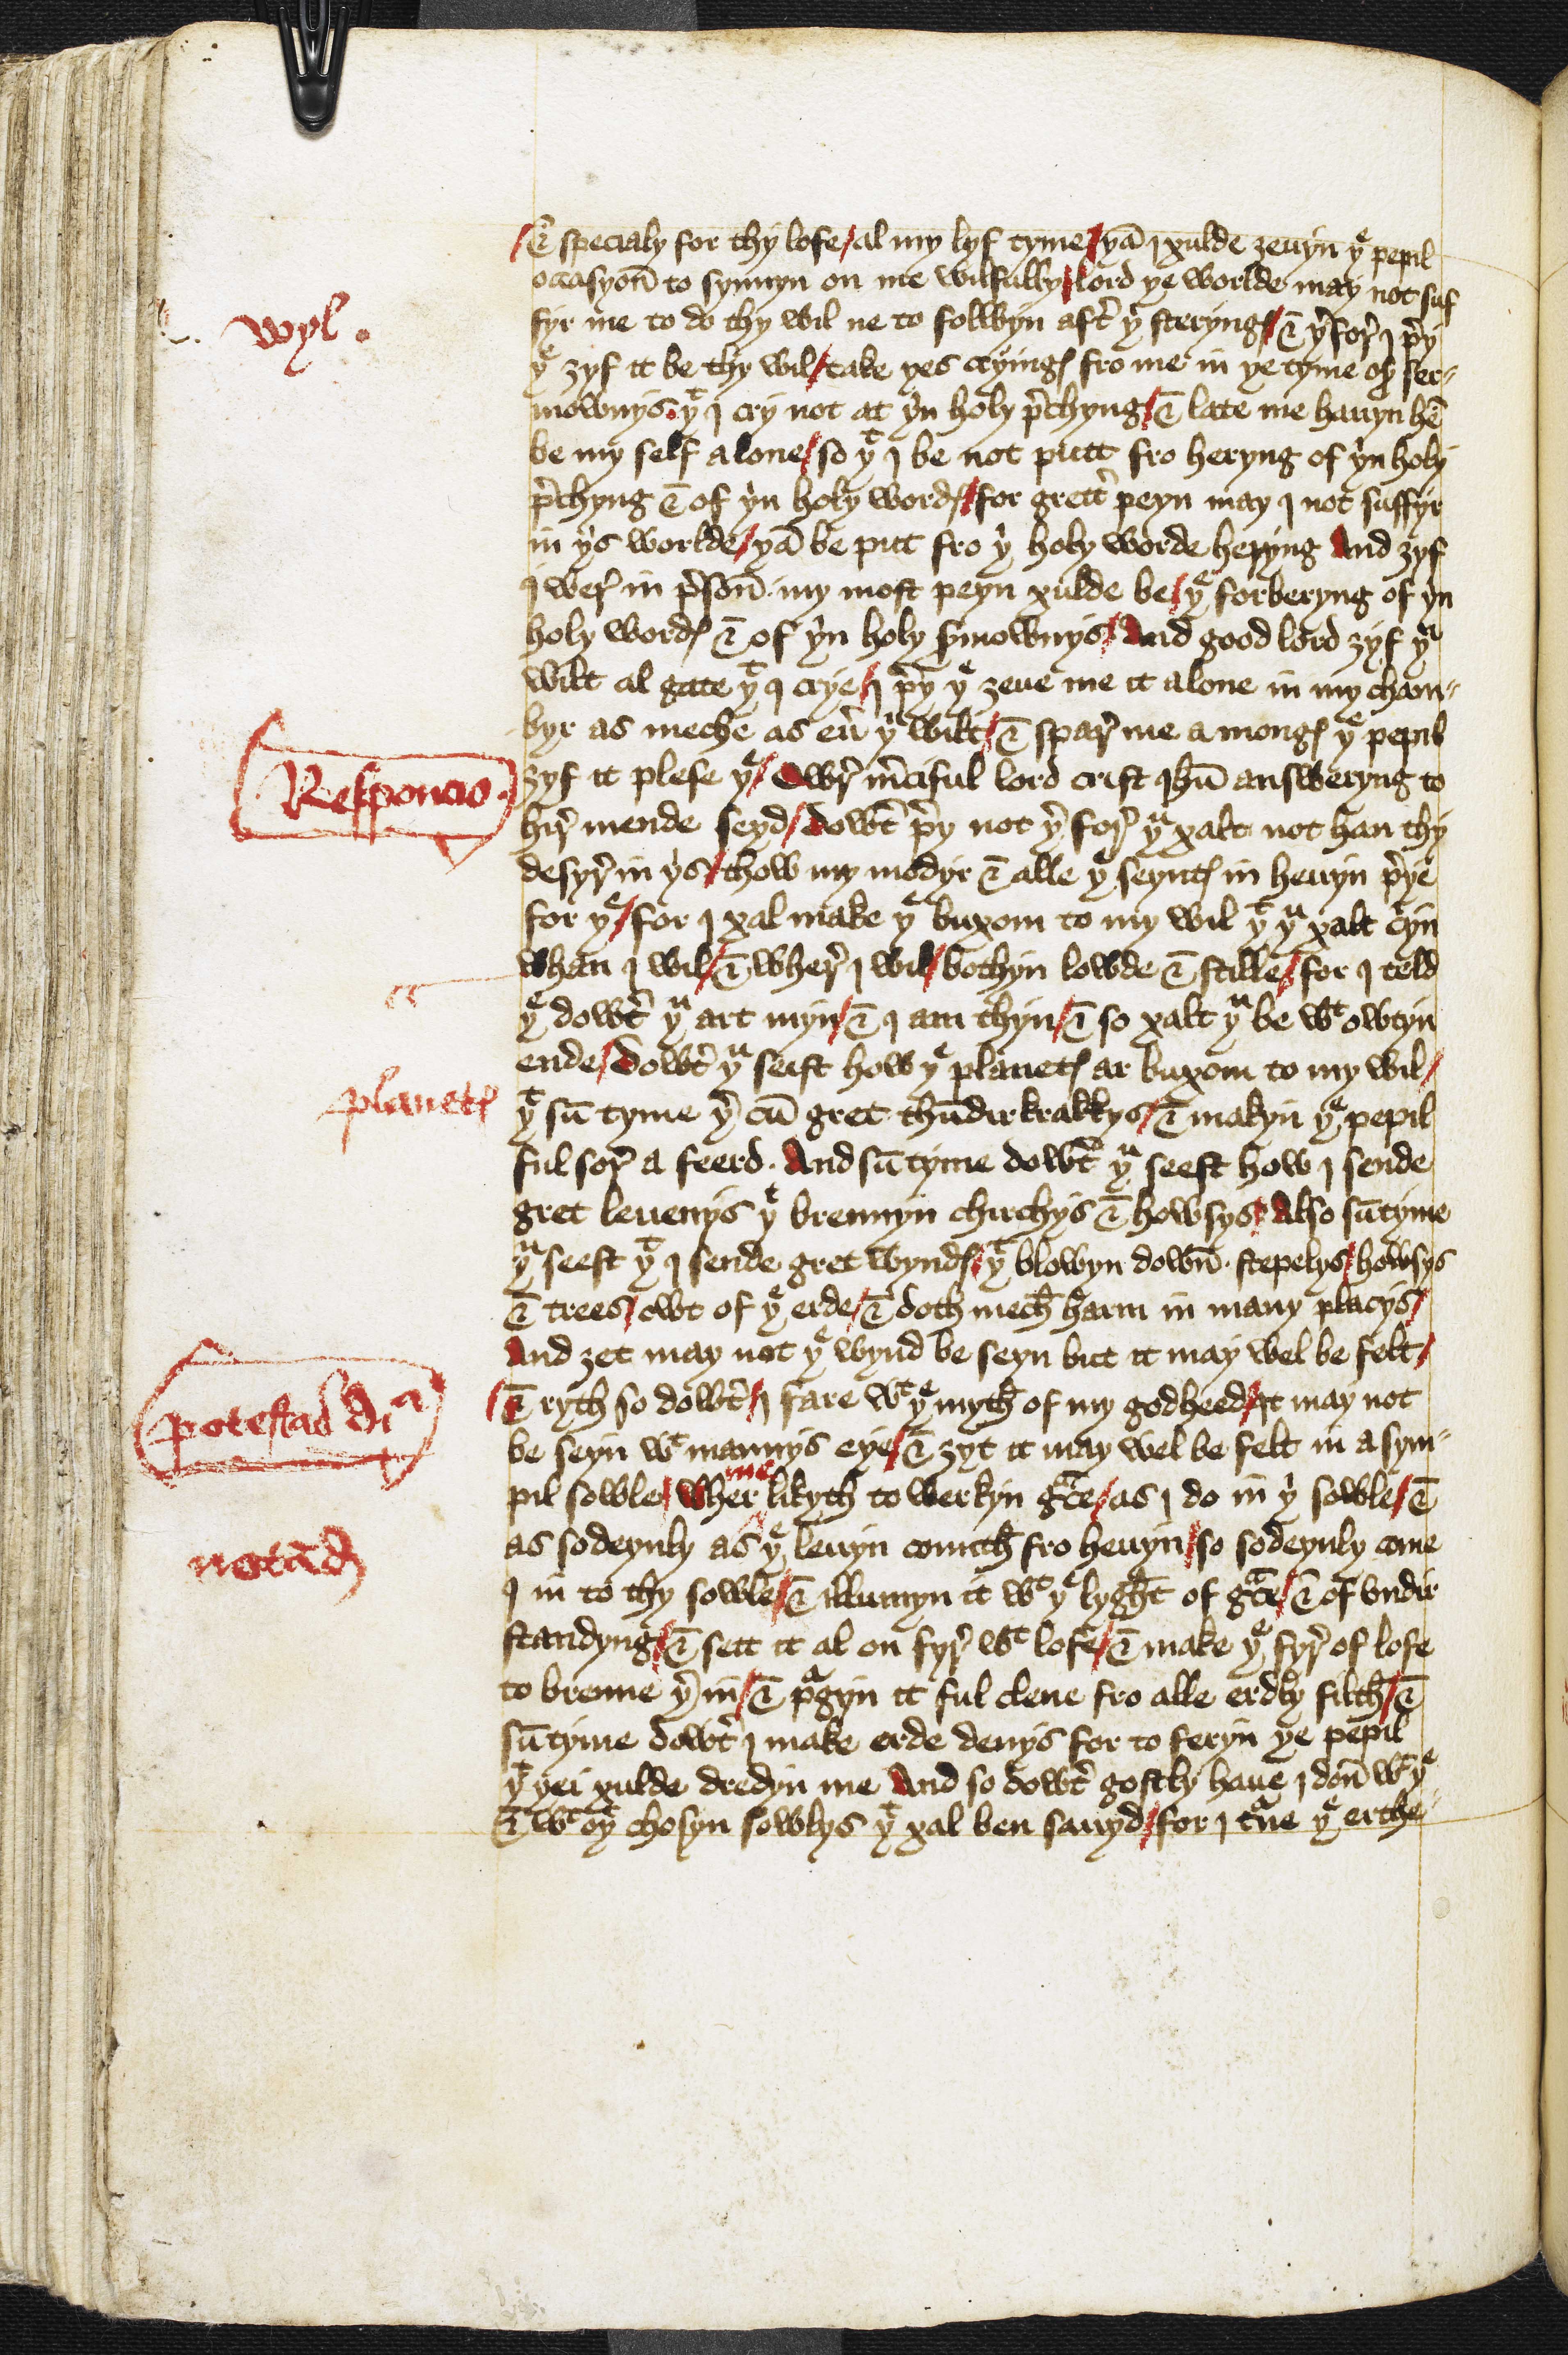 & specialy for thy lofe / al my lyf tyme / yā I xulde zeuyn yͤ pepil
occasyon̄ to synnyn on me wilfully / lord ye worlde may not suf
wyl.
fyr me to do thy wil ne to folwyn aft̛ yͥ steryngꝭ / & y̛for̛ I p̛y
yͤ zyf it be thy wil / take yes cryingꝭ fro me in ye tyme of ser-
mownys. yͭ I cry not at yͥn holy p̛chyng / & late me hauyn hē
be my self alone / so yͭ I be not putt fro heryng of yͥn holy
p̛chyng & of yͥn holy wordꝭ / for grett̛ peyn may I not suffyr
in yͥs worlde / yā be put fro yͥ holy worde heryng And zyf
I wer̛ in p̛son̄. my most peyn xulde be / yͤ forberyng of yͥn
holy wordꝭ & of yͥn holy s̛mownys / And good lord zyf yͧ
wilt al gate yͭ I crye / I p̛y yͤ zeue me it alone in my cham-
byr as meche as eư yͧ wilt / & spar̛ me a mongꝭ yͤ pepil
Responcio.
zyf it plese yͤ / Owr̛ m̛ciful lord crist ihū answeryng to
hir̛ mende seyd / dowt̛ p̛y not y̛for̛ yͧ xalt not han thy
desyr̛ in yͥs / thow my modyr & alle yͤ seyntꝭ in heuyn p̛ye
for yͤ / for I xal make yͤ buxom to my wil yͭ yͧ xalt c̛yn
whan I wil / & wher̛ I wil / bothyn lowde & stille / for I teld
yͤ dowt̛ yͧ art myn / & I am thyn / & so xalt yͧ be wͭ owtyn
ende / dowt̛ yͧ seist how yͤ planetꝭ ar buxom to my wil /
planetꝭ
yͭ sū tyme y̛ cū gret thūdirkrakkys / & makyn yͤ pepil
ful sor̛ a feerd. And sū tyme dowt̛ yͧ seest how I sende
gret leuenys yͭ brennyn chirchys & howsys / Also sū tyme
yͧ seest yͭ I sende gret wyndꝭ / yͭ blowyn down̄. stepelys / howsys
& trees / owt of yͤ erde / & doth mech̄ harm in many placys /
And zet may not yͤ wynd be seyn but it may wel be felt /
potestas diͣ
& ryth so dowt̛ / I fare wͭ yͤ myth̄ of my godheed / it may not
be seyn wͭ mannys eye / & zyt it may wel be felt in a sym-
pil sowle / wher me likyth̄ to werkyn gͣce / as I do in yͥ sowle / &
as sodeynly as yͤ leuyn comith̄ fro heuyn / so sodeynly come
notād
I in to thy sowle / & illumyn it wͭ yͤ lyght̄ of gͣce / & of vndir
standyng / & sett it al on fyr̛ wͭ lofe / & make yͤ fyr̛ of lofe
to brenne y̛ in / & pͣgyn it ful clene fro alle erdly filth̄ / &
sū tyme dowt̛ I make erde denys for to feryn ye pepil
yͭ yei xulde dredyn me And so dowt̛ gostly haue I don̄ wͭ yͤ
& wͭ oy̛ chosyn sowlys yͭ xal ben sauyd / for I t̛ne yͤ erthe